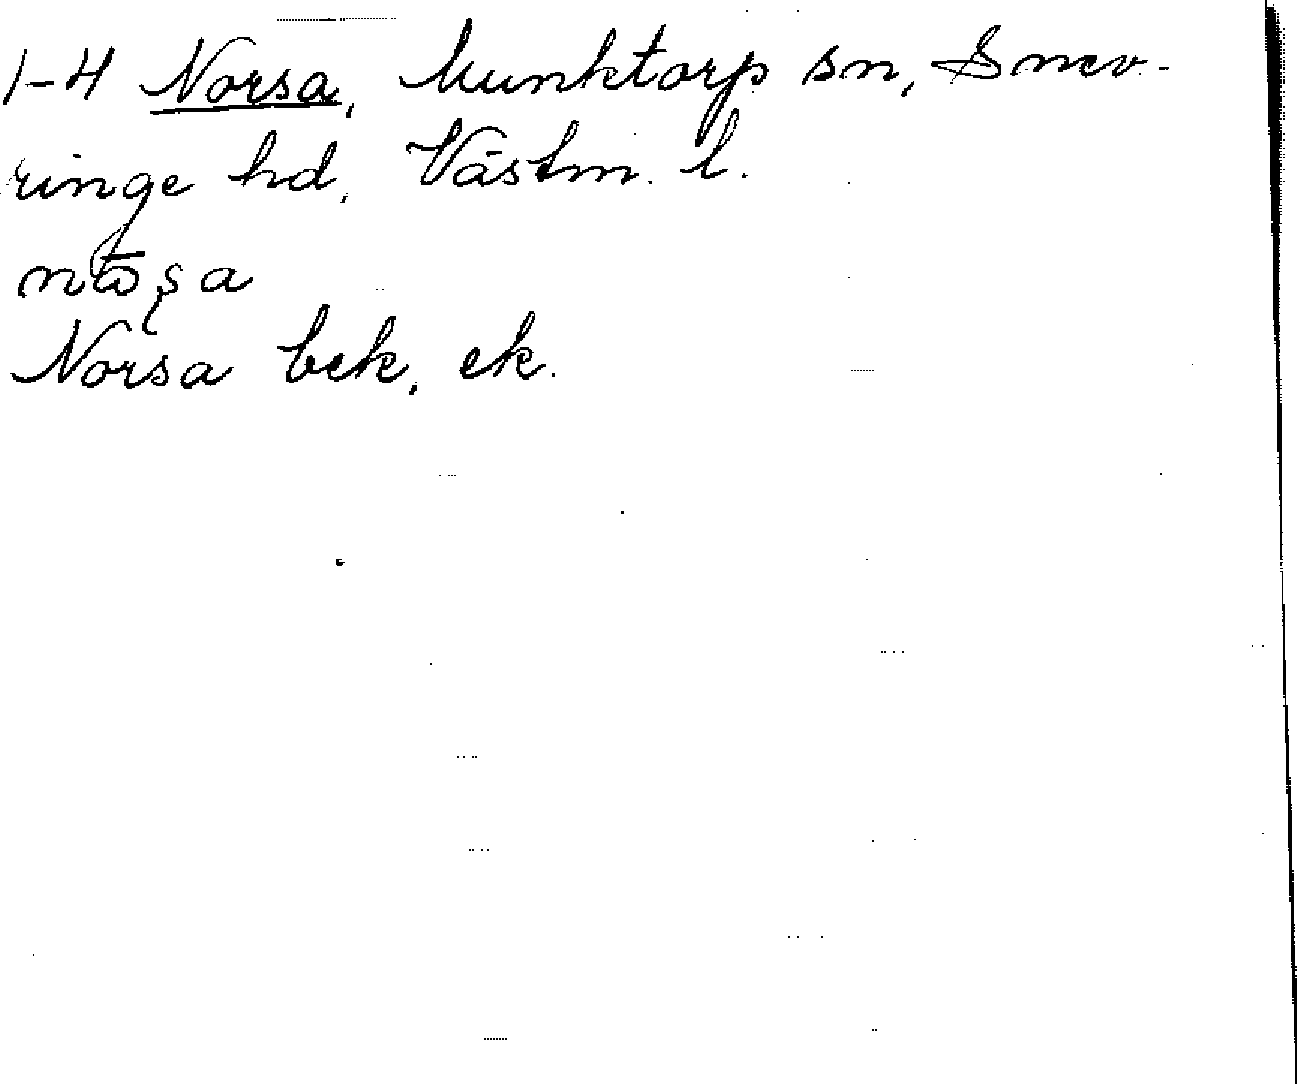 1-4 Norsa, Munktorp sn, Snev-
ringe hd, Västm. l.
Norsa bek, ek.